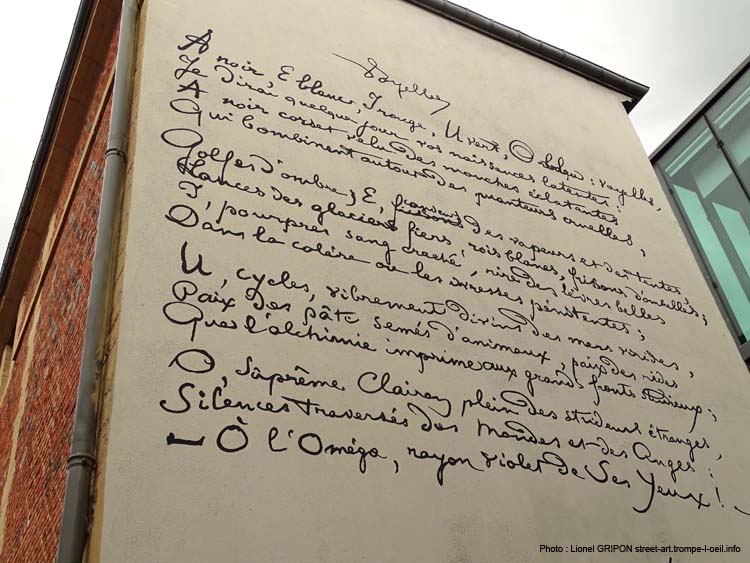 Voyelles
A noir, E blanc, I rouge, U vert, O bleu : voyelles,
Je dirai quelque jour vos naissances latentes :
A noir corset velu des mouches éclatantes
Qui bombinent autour des puanteurs cruelles,
Golfes d'ombre ; E, frissons des vapeurs et des tentes,
Lances des glaciers fiers, rois blancs, frissons d'ombelles ;
I, pourpres, sang craché, rire des lèvres belles
Dans la colère ou les ivresses pénitentes ;
U, cycles, vibrements divins des mers virides,
Paix des pâtis semés d'animaux, paix des rides
Que l'alchimie imprime aux grands fronts studieux ;
O, Suprême Clairon plein des strideurs étranges,
Silences traversés des Mondes et des Anges :
– O l'Oméga, rayon violet de Ses Yeux !
Photo : Lionel GRIPON street-art.trompe-l-oeil.info